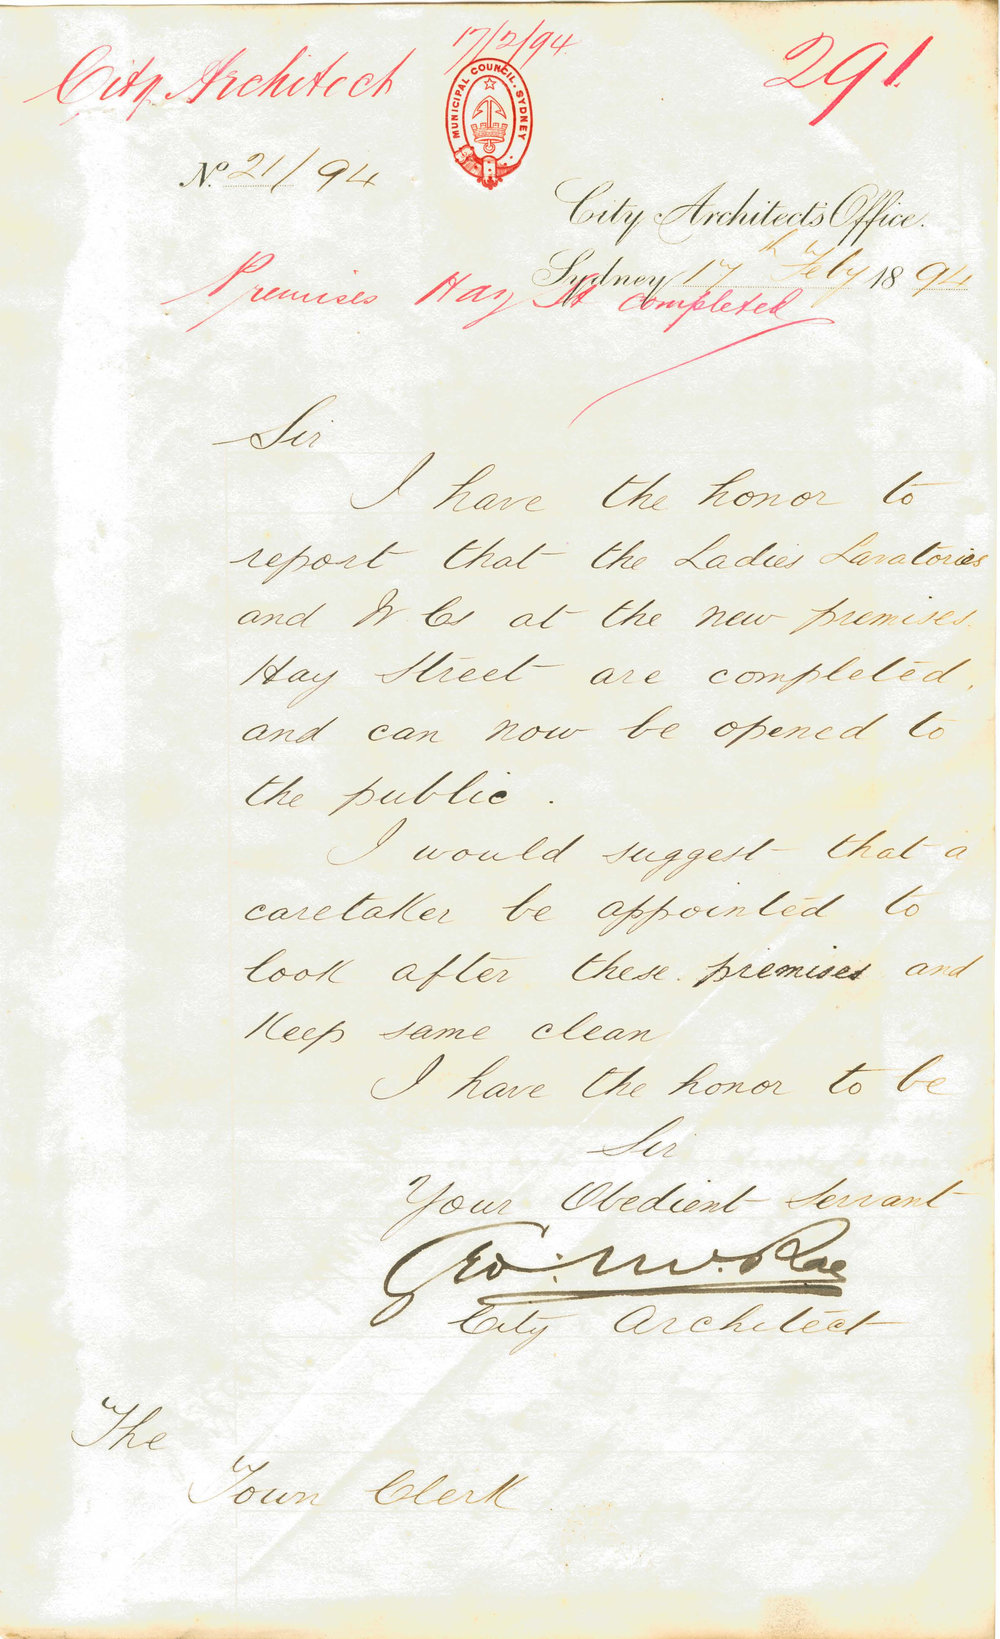 17/2/94
City Architect
291.
MUNICIPAL COUNCIL. SYDNEY
No. 21/94
City Architect's Office.
Sydney 17th Feby 1894
Premises Hay St completed
Sir
I have the honor to
report that the Ladies Lavatories
and W.Cs at the new premises.
Hay Street are completed,
and can now be opened to
the public.
I would suggest that a
caretaker be appointed to
look after these premises and
Keep same clean
I have the honor to be
Sir
Your Obedient Servant
Geo: McRae
City Architect
The
Town Clerk